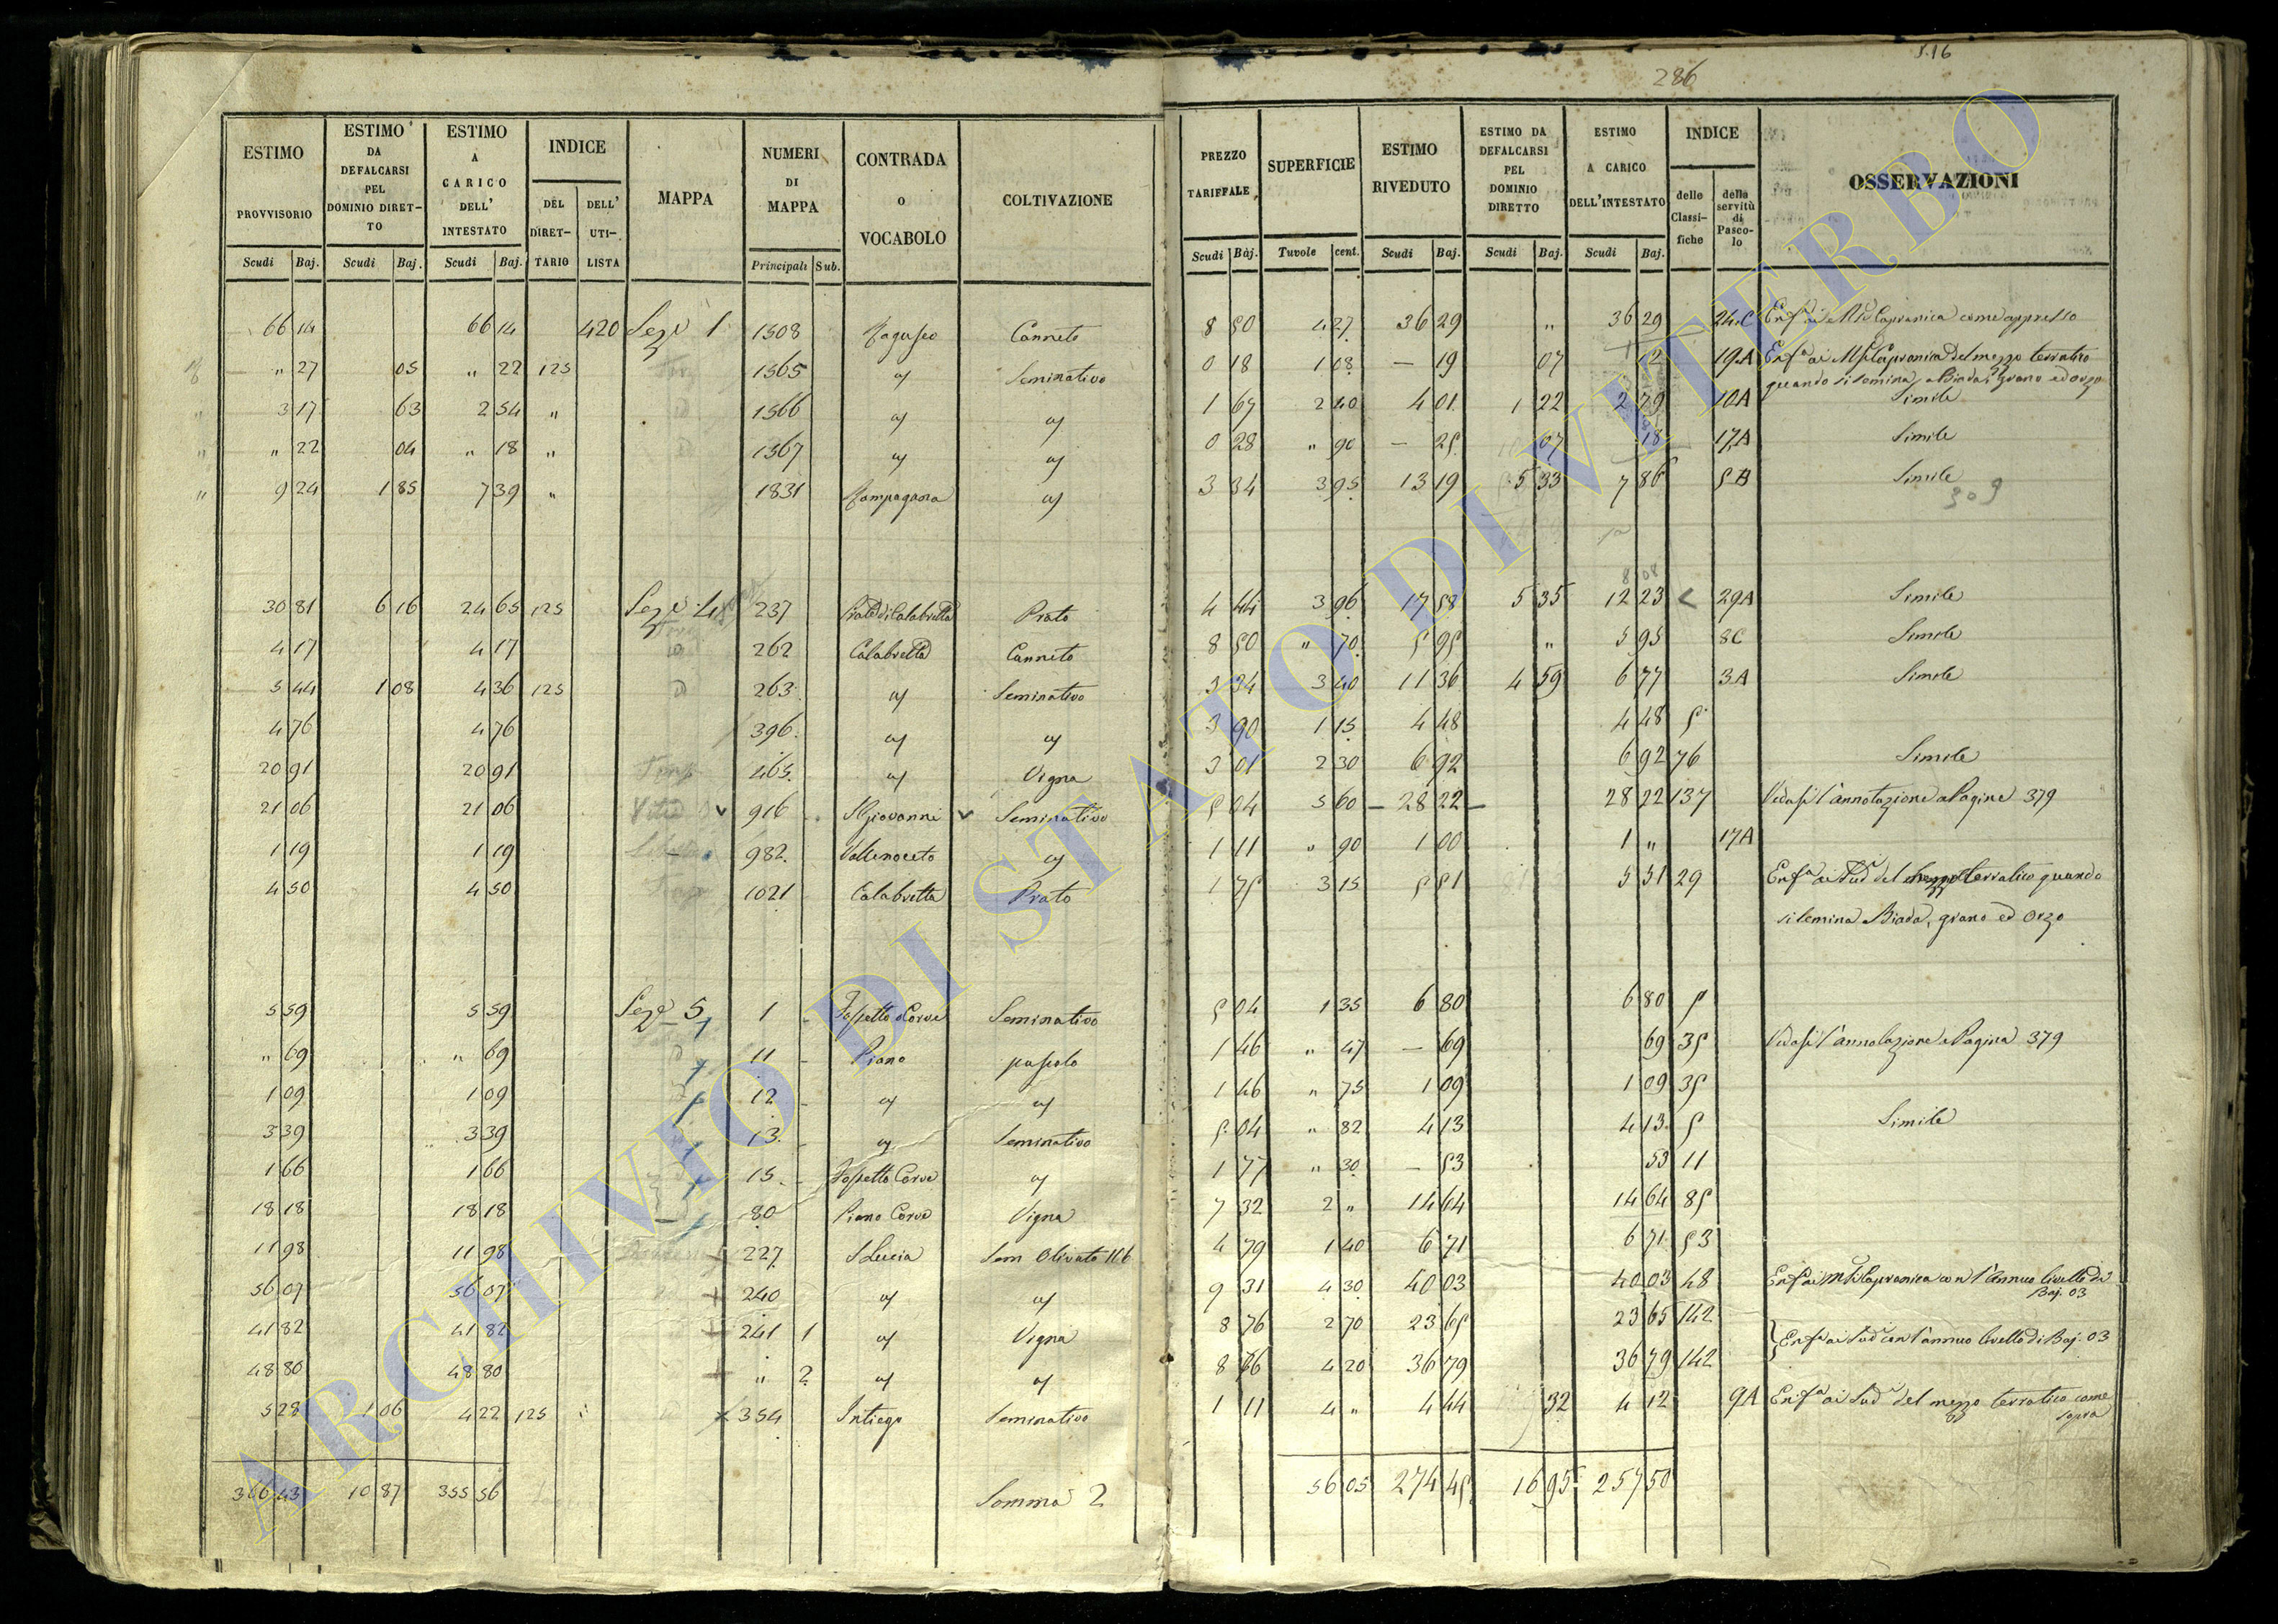 516
286
ESTIMO PROVVISORIO | ESTIMO DA DEFALCARSI PEL DOMINIO DIRETTO | ESTIMO A CARICO DELL' INTESTATO | INDICE DEL DIRETTARIO | DELL' UTILISTA | MAPPA | NUMERI DI MAPPA | CONTRADA O VOCABOLO | COLTIVAZIONE | PREZZO TARIFFALE | SUPERFICIE | ESTIMO RIVEDUTO | ESTIMO DA DEFALCARSI PEL DOMINIO DIRETTO | ESTIMO A CARICO DELL'INTESTATO | INDICE delle Classifiche | della servitù di Pascolo | OSSERVAZIONI
Scudi | Baj. | Scudi | Baj. | Scudi | Baj. | Principali | Sub. | Scudi | Baj. | Tavole | cent. | Scudi | Baj. | Scudi | Baj. | Scudi | Baj.
66 14 | 66 14 | 420 | Sez.e 1 | 1308 | Raguseo | Canneto | 8 50 | 4 27 | 36 29 | " | 36 29 | 24.C | Capranica come appresso
" 27 | 05 | " 22 | 125 | 1365 | Seminativo | 0 18 | 1 08 | — 19 | 07 | 12 | 19.A | Capranica del mezzo terratico
quando si semina Biada, grano ed orzo
3 17 | 63 | 2 54 | " | 1366 | 1 67 | 2 40 | 4 01 | 1 22 | 2 79 | 10A | Simile
" 22 | 04 | " 18 | " | 1367 | 0 28 | " 90 | — 25 | 07 | 18 | 17A | Simile
9 24 | 1 85 | 7 39 | " | 1831 | 3 34 | 3 95 | 13 19 | 5 33 | 7 86 | 5 B | Simile
309
8 08
30 81 | 6 16 | 24 65 | 125 | Sez.e 4 | 237 | Prato di Calabretta | Prato | 4 44 | 3 96 | 17 58 | 5 35 | 12 23 | 29A | Simile
4 17 | 4 17 | 262 | Calabretta | Canneto | 8 50 | " 70 | 5 95 | " | 5 95 | 8C | Simile
5 44 | 1 08 | 4 36 | 125 | 263 | Seminativo | 3 34 | 3 40 | 11 36 | 4 59 | 6 77 | 3A | Simile
4 76 | 4 76 | 396 | 3 90 | 1 15 | 4 48 | 4 48 | 5
20 91 | 20 91 | 463 | Vigna | 3 01 | 2 30 | 6 92 | 6 92 | 76 | Simile
21 06 | 21 06 | 916 | S Giovanni | Seminativo | 5 04 | 5 60 | 28 22 | 28 22 | 137 | Vedasi l'annotazione a Pagine 379
1 19 | 1 19 | 982 | Vallenoceto | 1 11 | " 90 | 1 00 | 1 " | 17A
4 50 | 4 50 | 1021 | Calabretta | Prato | 1 75 | 3 15 | 5 51 | 5 51 | 29 | del mezzo terratico quando
si semina Biada, grano ed Orzo
5 59 | 5 59 | Sez.e 5 | 1 | Fossetto Corve | Seminativo | 5 04 | 1 35 | 6 80 | 6 80 | 5
" 69 | " 69 | 11 | Piano | pascolo | 1 46 | " 47 | — 69 | 69 | 35 | Vedasi l'annotazione a Pagina 379
1 09 | 1 09 | 12 | 1 46 | " 75 | 1 09 | 1 09 | 35
3 39 | 3 39 | 13 | Seminativo | 5 04 | " 82 | 4 13 | 4 13 | 5 | Simile
1 66 | 1 66 | 15 | Fossetto Corve | 1 77 | " 30 | — 53 | 53 | 11
18 18 | 18 18 | 80 | Piano Corve | Vigna | 7 32 | 2 " | 14 64 | 14 64 | 85
11 98 | 11 98 | 227 | S Lucia | Sem Olivato | 4 79 | 1 40 | 6 71 | 6 71 | 53
56 07 | 56 07 | 240 | 9 31 | 4 30 | 40 03 | 40 03 | 48 | Capranica con l'annuo livello di
Baj. 03
41 82 | 41 82 | 241 | 1 | Vigna | 8 76 | 2 70 | 23 65 | 23 65 | 142 | con l'annuo livello di Baj. 03
48 80 | 48 80 | " | 2 | 8 76 | 4 20 | 36 79 | 36 79 | 142
5 28 | 1 06 | 4 22 | 125 | 354 | Intiego | Seminativo | 1 11 | 4 " | 4 44 | 32 | 4 12 | 9A | del mezzo terratico come
sopra
366 43 | 10 87 | 355 56 | Somma 2 | 56 05 | 274 45 | 16 95 | 257 50
ARCHIVIO DI STATO DI VITERBO